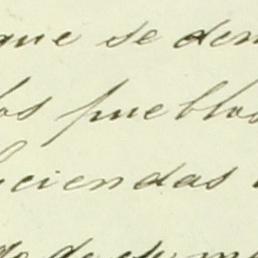 que se den
los pueblos
ciendas
do de su m